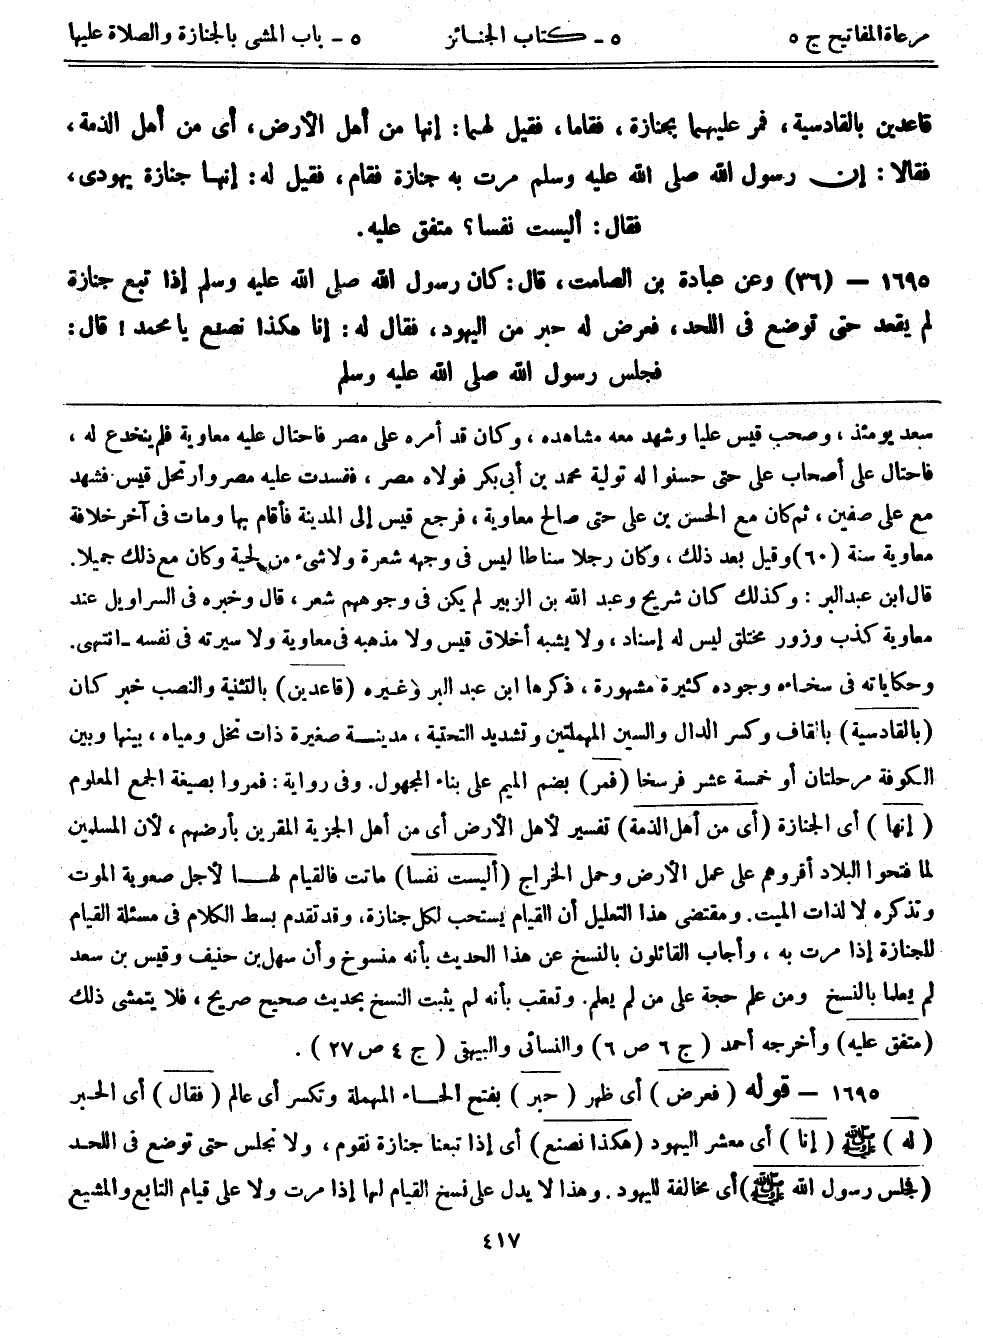 مرعاة المفاتيح ج ٥ ٥ ـ كتاب الجنائز ٥ ـ باب المشى بالجنازة والصلاة عليها
قاعدين بالقادسية، فمر عليهما بجنازة، فقاما، فقيل لهما: إنها من أهل الأرض، أى من أهل الذمة،
فقالا: إن رسول الله صلى الله عليه وسلم مرت به جنازة فقام، فقيل له: إنها جنازة يهودى،
فقال: أليست نفسا؟ متفق عليه.
١٦٩٥ – (٣٦) وعن عبادة بن الصامت، قال: كان رسول الله صلى الله عليه وسلم إذا تبع جنازة
لم يقعد حتى توضع فى اللحد، فعرض له حبر من اليهود، فقال له: إنا هكذا نصنع يا محمد! قال:
فجلس رسول الله صلى الله عليه وسلم
سعد يومئذ، وصحب قيس عليا وشهد معه مشاهده، وكان قد أمره على مصر فاحتال عليه معاوية فلم ينخدع له،
فاحتال على أصحاب على حتى حسنوا له تولية محمد بن أبى بكر فولاه مصر، ففسدت عليه مصر وارتحل قيس فشهد
مع على صفين، ثم كان مع الحسن بن على حتى صالح معاوية، فرجع قيس إلى المدينة فأقام بها ومات فى آخر خلافة
معاوية سنة (٦٠) وقيل بعد ذلك، وكان رجلا سناطا ليس فى وجهه شعرة ولا شىء من لحية وكان مع ذلك جميلا.
قال ابن عبدالبر: وكذلك كان شريح وعبد الله بن الزبير لم يكن فى وجوههم شعر، قال وخبره فى السراويل عند
معاوية كذب وزور مختلق ليس له إسناد، ولا يشبه أخلاق قيس ولا مذهبه فى معاوية ولا سيرته فى نفسه ـ انتهى.
وحكاياته فى سخاءه وجوده كثيرة مشهورة، ذكرها ابن عبد البر وغيره (قاعدين) بالتثنية والنصب خبر كان
(بالقادسية) بالقاف وكسر الدال والسين المهملتين وتشديد التحتية، مدينة صغيرة ذات نخل ومياه، بينها وبين
الكوفة مرحلتان أو خمسة عشر فرسخا (فمر) بضم الميم على بناء المجهول. وفى رواية: فمروا بصيغة الجمع المعلوم
(إنها) أى الجنازة (أى من أهل الذمة) تفسير لأهل الأرض أى من أهل الجزية المقرين بأرضهم، لأن المسلمين
لما فتحوا البلاد أقروهم على عمل الأرض وحمل الخراج (أليست نفسا) ماتت فالقيام لها لأجل صعوبة الموت
وتذكره لا لذات الميت. ومقتضى هذا التعليل أن القيام يستحب لكل جنازة، وقد تقدم بسط الكلام فى مسئلة القيام
للجنازة إذا مرت به، وأجاب القائلون بالنسخ عن هذا الحديث بأنه منسوخ وأن سهل بن حنيف وقيس بن سعد
لم يعلما بالنسخ ومن علم حجة على من لم يعلم. وتعقب بأنه لم يثبت النسخ بحديث صحيح صريح، فلا يتمشى ذلك
(متفق عليه) وأخرجه أحمد (ج ٦ ص ٦) والنسائى والبيهقى (ج ٤ ص ٢٧).
١٦٩٥ – قوله (فعرض) أى ظهر (حبر) بفتح الحاء المهملة وتكسر أى عالم (فقال) أى الحبر
(له) ﷺ (إنا) أى معشر اليهود (هكذا نصنع) أى إذا تبعنا جنازة نقوم، ولا نجلس حتى توضع فى اللحد
(فجلس رسول الله ﷺ) أى مخالفة لليهود. وهذا لا يدل على نسخ القيام لها إذا مرت ولا على قيام التابع والمشيع
٤١٧